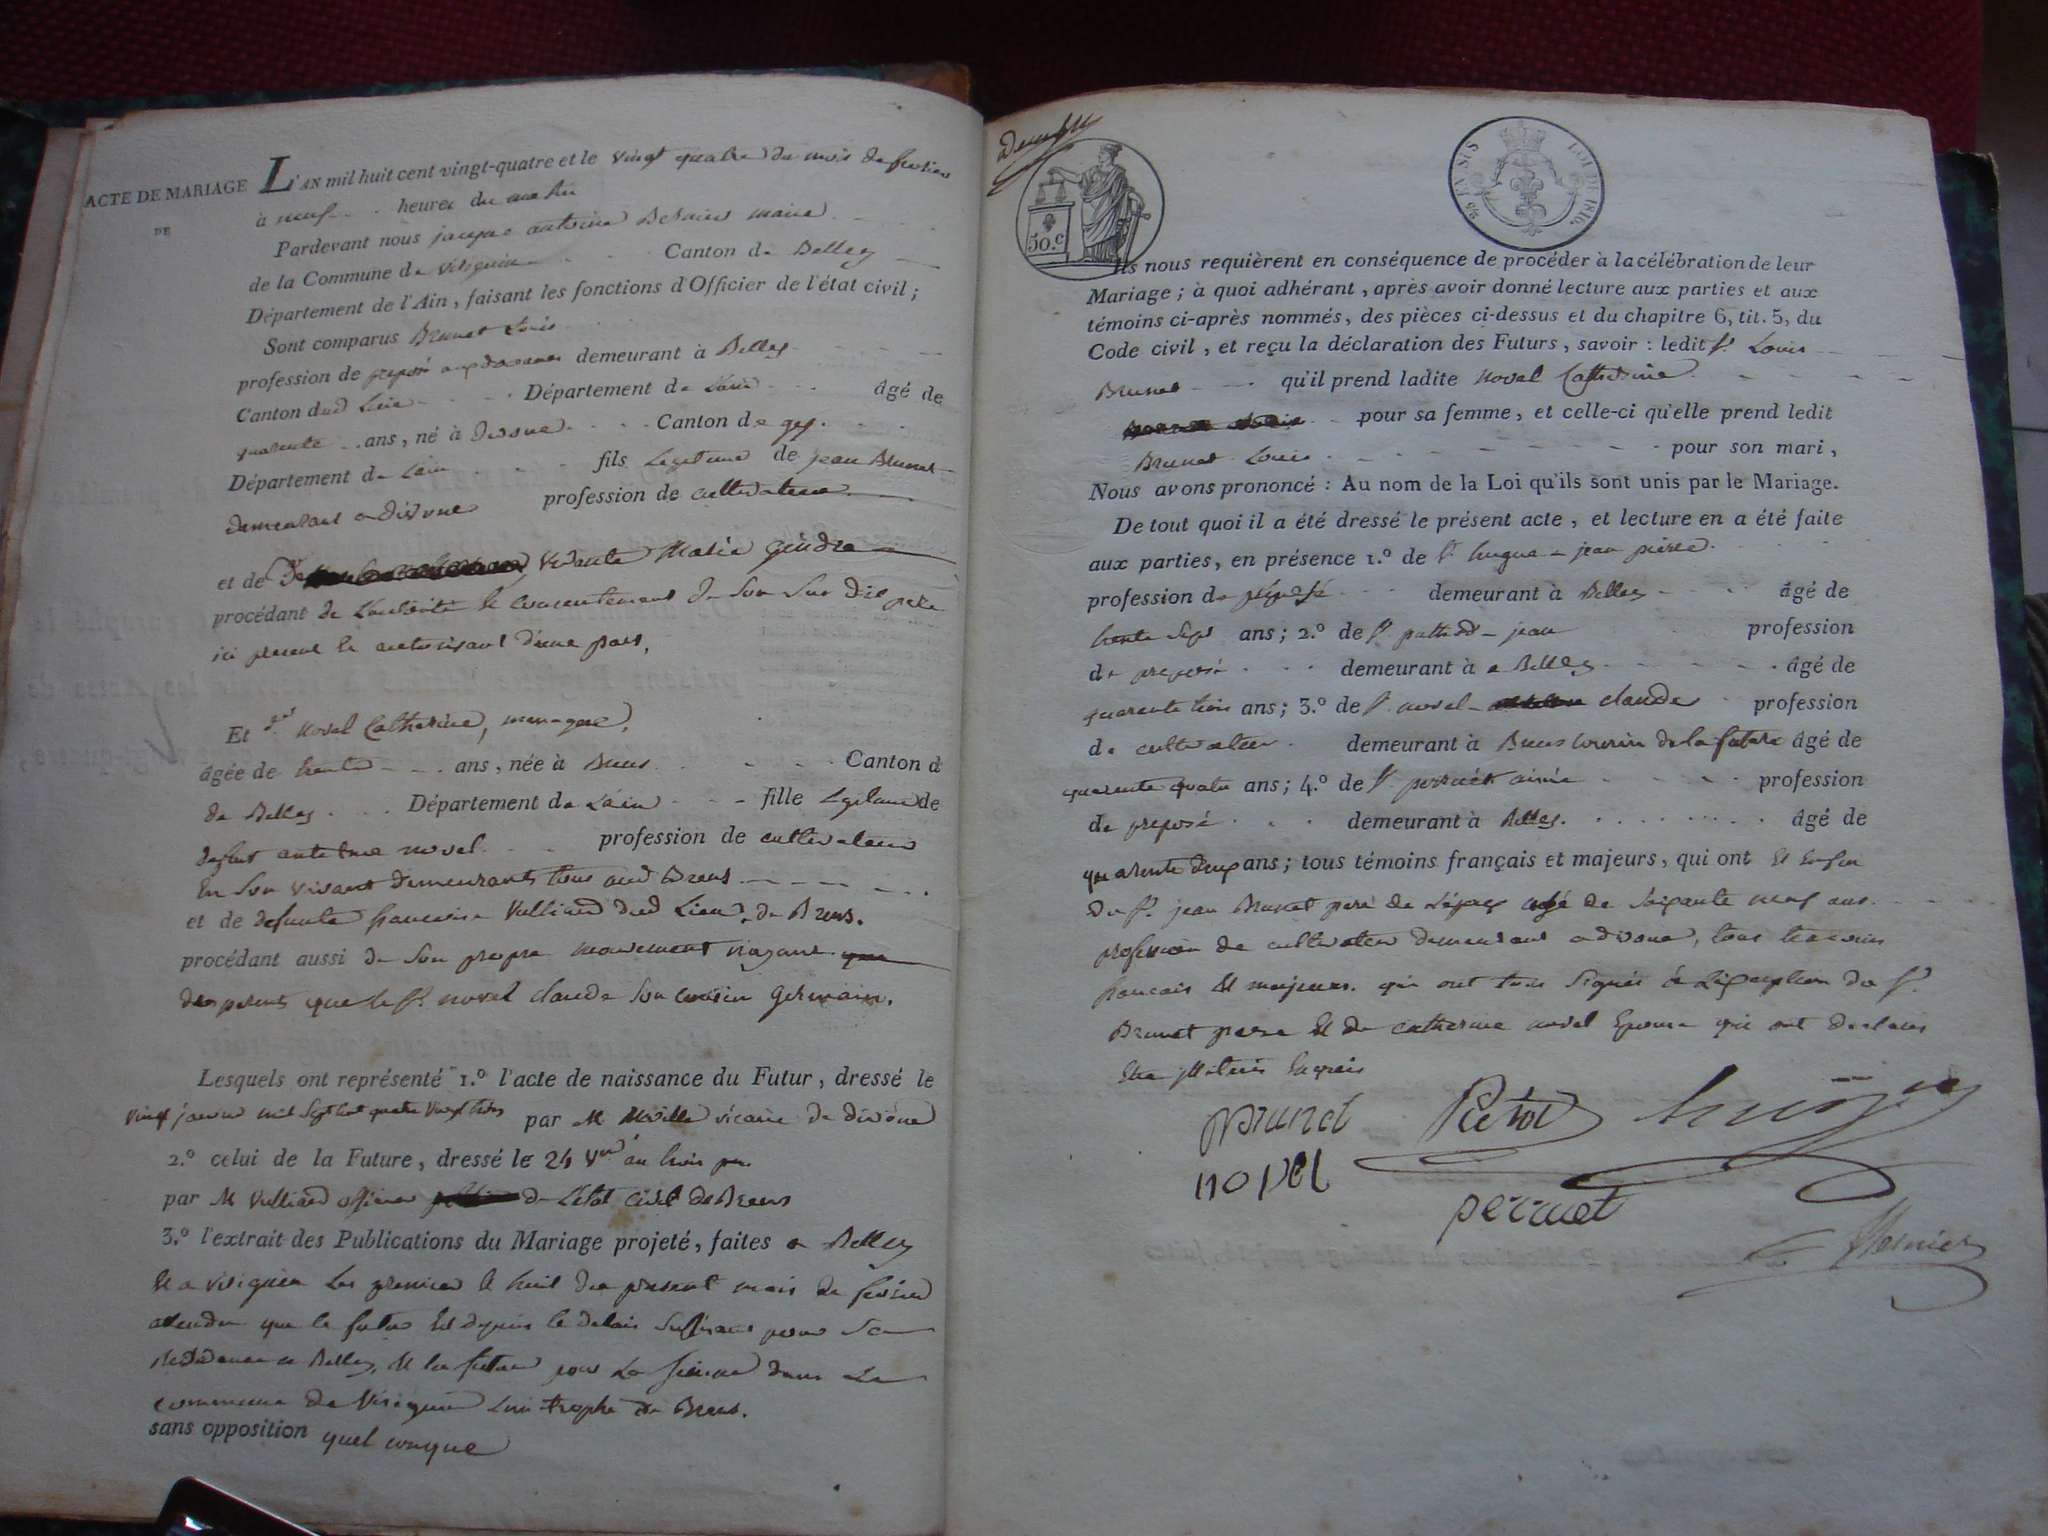 ACTE DE MARIAGE
DE
L'AN mil huit cent vingt-quatre et le vingt quatre du mois de fevrier
à neuf heures du matin
Pardevant nous jacque antoine maire
de la Commune de virignin Canton de Belley
Département de l'Ain, faisant les fonctions d'Officier de l'état civil;
Sont comparus Brunet Louis
profession de preposé aux douanes demeurant à Belley
Canton dud Lieu Département de Lain âgé de
quarante ans, né à divone Canton de gex
Département de Lain fils Legitime de jean Brunet
demeurant a divone profession de cultivateur
et de vivante Marie gindre
procédant de L'autorité et consentement de Son Sus dit pere
ici present et autorisant d'une part,
Et Novel Catherine, menagere,
âgée de trente ans, née à Brens Canton d
de Belley Département de Lain fille Legitime de
defunt antoine novel profession de cultivateur
En Son vivant demeurant tous aud Brens
et de defunte francoise Vulliard dud Lieu de Brens.
procédant aussi de Son propre mouvement n'ayant
des parents que le Sr. novel claude Son cousin Germain.
Lesquels ont représenté 1.º l'acte de naissance du Futur, dressé le
vingt janvier mil Sept cent quatre vingt trois par M vicaire de divone
2.º celui de la Future, dressé le 24 an trois
par M Vulliard officier de L'etat civil de Brens
3.º l'extrait des Publications du Mariage projeté, faites a Belley
Et a virignin Les premier et huit du present mois de fevrier
attendu que le futur Est depuis le delais Suffisant pour Sa
Residance a Belley, et la future pour La Sienne dans La
commune de Virignin Limitrophe de Brens.
sans opposition quel conque
50.c
LOI DE 1816.
Ils nous requièrent en conséquence de procéder à la célébration de leur
Mariage; à quoi adhérant, après avoir donné lecture aux parties et aux
témoins ci-après nommés, des pièces ci-dessus et du chapitre 6, tit. 5, du
Code civil, et reçu la déclaration des Futurs, savoir: ledit Sr. Louis
Brunet qu'il prend ladite Novel Catherine
pour sa femme, et celle-ci qu'elle prend ledit
Brunet Louis pour son mari,
Nous avons prononcé: Au nom de la Loi qu'ils sont unis par le Mariage.
De tout quoi il a été dressé le présent acte, et lecture en a été faite
aux parties, en présence 1.º de Sr. jean pierre
profession de préposé demeurant à Belley âgé de
trente Sept ans; 2.º de Sr. jean profession
de preposé demeurant à a Belley âgé de
quarante trois ans; 3.º de Sr. novel claude profession
de cultivateur demeurant à Brens cousin de la future âgé de
quarante quatre ans; 4.º de Sr. perruet aimé profession
de preposé demeurant à Belley. âgé de
quarante deux ans; tous témoins français et majeurs, qui ont Et Enfin
du Sr. jean Brunet pere de L'epoux agé de Soixante neuf ans
profession de cultivateur demeurant a divone, tous temoins
francais Et majeurs. qui ont tous Signés à L'exception du Sr.
Brunet pere Et de catherine novel Epouse qui ont declarés
Brunet
novel
perruet